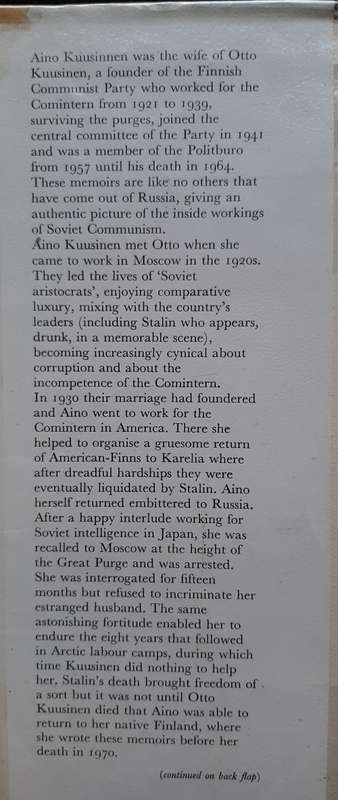 Aino Kuusinnen was the wife of Otto
Kuusinen, a founder of the Finnish
Communist Party who worked for the
Comintern from 1921 to 1939,
surviving the purges, joined the
central committee of the Party in 1941
and was a member of the Politburo
from 1957 until his death in 1964.
These memoirs are like no others that
have come out of Russia, giving an
authentic picture of the inside workings
of Soviet Communism.
Aino Kuusinen met Otto when she
came to work in Moscow in the 1920s.
They led the lives of ‘Soviet
aristocrats’, enjoying comparative
luxury, mixing with the country’s
leaders (including Stalin who appears,
drunk, in a memorable scene),
becoming increasingly cynical about
corruption and about the
incompetence of the Comintern.
In 1930 their marriage had foundered
and Aino went to work for the
Comintern in America. There she
helped to organise a gruesome return
of American-Finns to Karelia where
after dreadful hardships they were
eventually liquidated by Stalin. Aino
herself returned embittered to Russia.
After a happy interlude working for
Soviet intelligence in Japan, she was
recalled to Moscow at the height of
the Great Purge and was arrested.
She was interrogated for fifteen
months but refused to incriminate her
estranged husband. The same
astonishing fortitude enabled her to
endure the eight years that followed
in Arctic labour camps, during which
time Kuusinen did nothing to help
her. Stalin’s death brought freedom of
a sort but it was not until Otto
Kuusinen died that Aino was able to
return to her native Finland, where
she wrote these memoirs before her
death in 1970.
(continued on back flap)